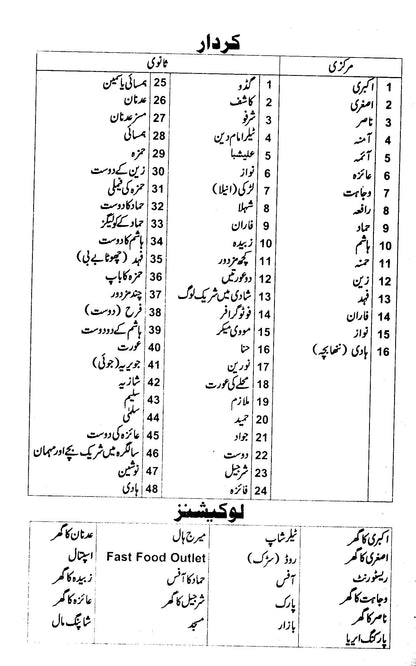 کردار
مرکزی
1 اکبری
2 اصغری
3 ناصر
4 آمنہ
5 آئمہ
6 عائزہ
7 وجاہت
8 رافعہ
9 حماد
10 ہاشم
11 حمنہ
12 زین
13 فہد
14 فاران
15 نواز
16 ہادی (ننھا بچہ)
ثانوی
1 گڈو
2 کاشف
3 شرفو
4 ٹیلر امام دین
5 علیشبا
6 نواز
7 لڑکی (انیلا)
8 شہلا
9 فاران
10 زبیدہ
11 کچھ مزدور
12 دو عورتیں
13 شادی میں شریک لوگ
14 فوٹو گرافر
15 مووی میکر
16 حنا
17 نورین
18 محلے کی عورت
19 ملازم
20 حمید
21 جواد
22 دوست
23 شرجیل
24 فائزہ
25 ہمسائی یاسمین
26 عدنان
27 مسز عدنان
28 ہمسائی
29 حمزہ
30 زین کے دوست
31 حمزہ کی فیملی
32 حماد کا دوست
33 حماد کے کولیگز
34 ہاشم کا دوست
35 فہد (چھوٹا بے بی)
36 حمزہ کا باپ
37 چند مزدور
38 فرح (دوست)
39 ہاشم کے دو دوست
40 عورت
41 جویریہ (جوئی)
42 شازیہ
43 سلیم
44 سلمٰی
45 عائزہ کی دوست
46 سالگرہ میں شریک بچے اور مہمان
47 نوشین
48 ہادی
لوکیشنز
اکبری کا گھر
اصغری کا گھر
ریسٹورنٹ
وجاہت کا گھر
ناصر کا گھر
پارکنگ ایریا
ٹیلر شاپ
روڈ (سڑک)
آفس
پارک
بازار
میرج ہال
Fast Food Outlet
حماد کا آفس
شرجیل کا گھر
مسجد
عدنان کا گھر
اسپتال
زبیدہ کا گھر
عائزہ کا گھر
شاپنگ مال